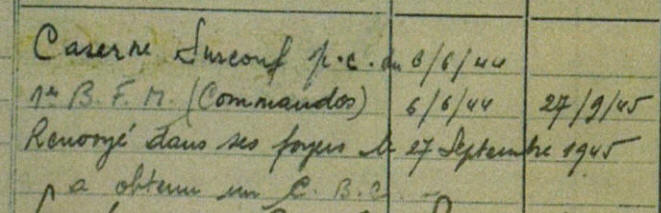 Caserne Surcouf p.c. du 6/6/44
1er B. F. M. (Commandos) 6/6/44 27/9/45
Renvoyé dans ses foyers le 27 Septembre 1945
a obtenu un C. B. C. -